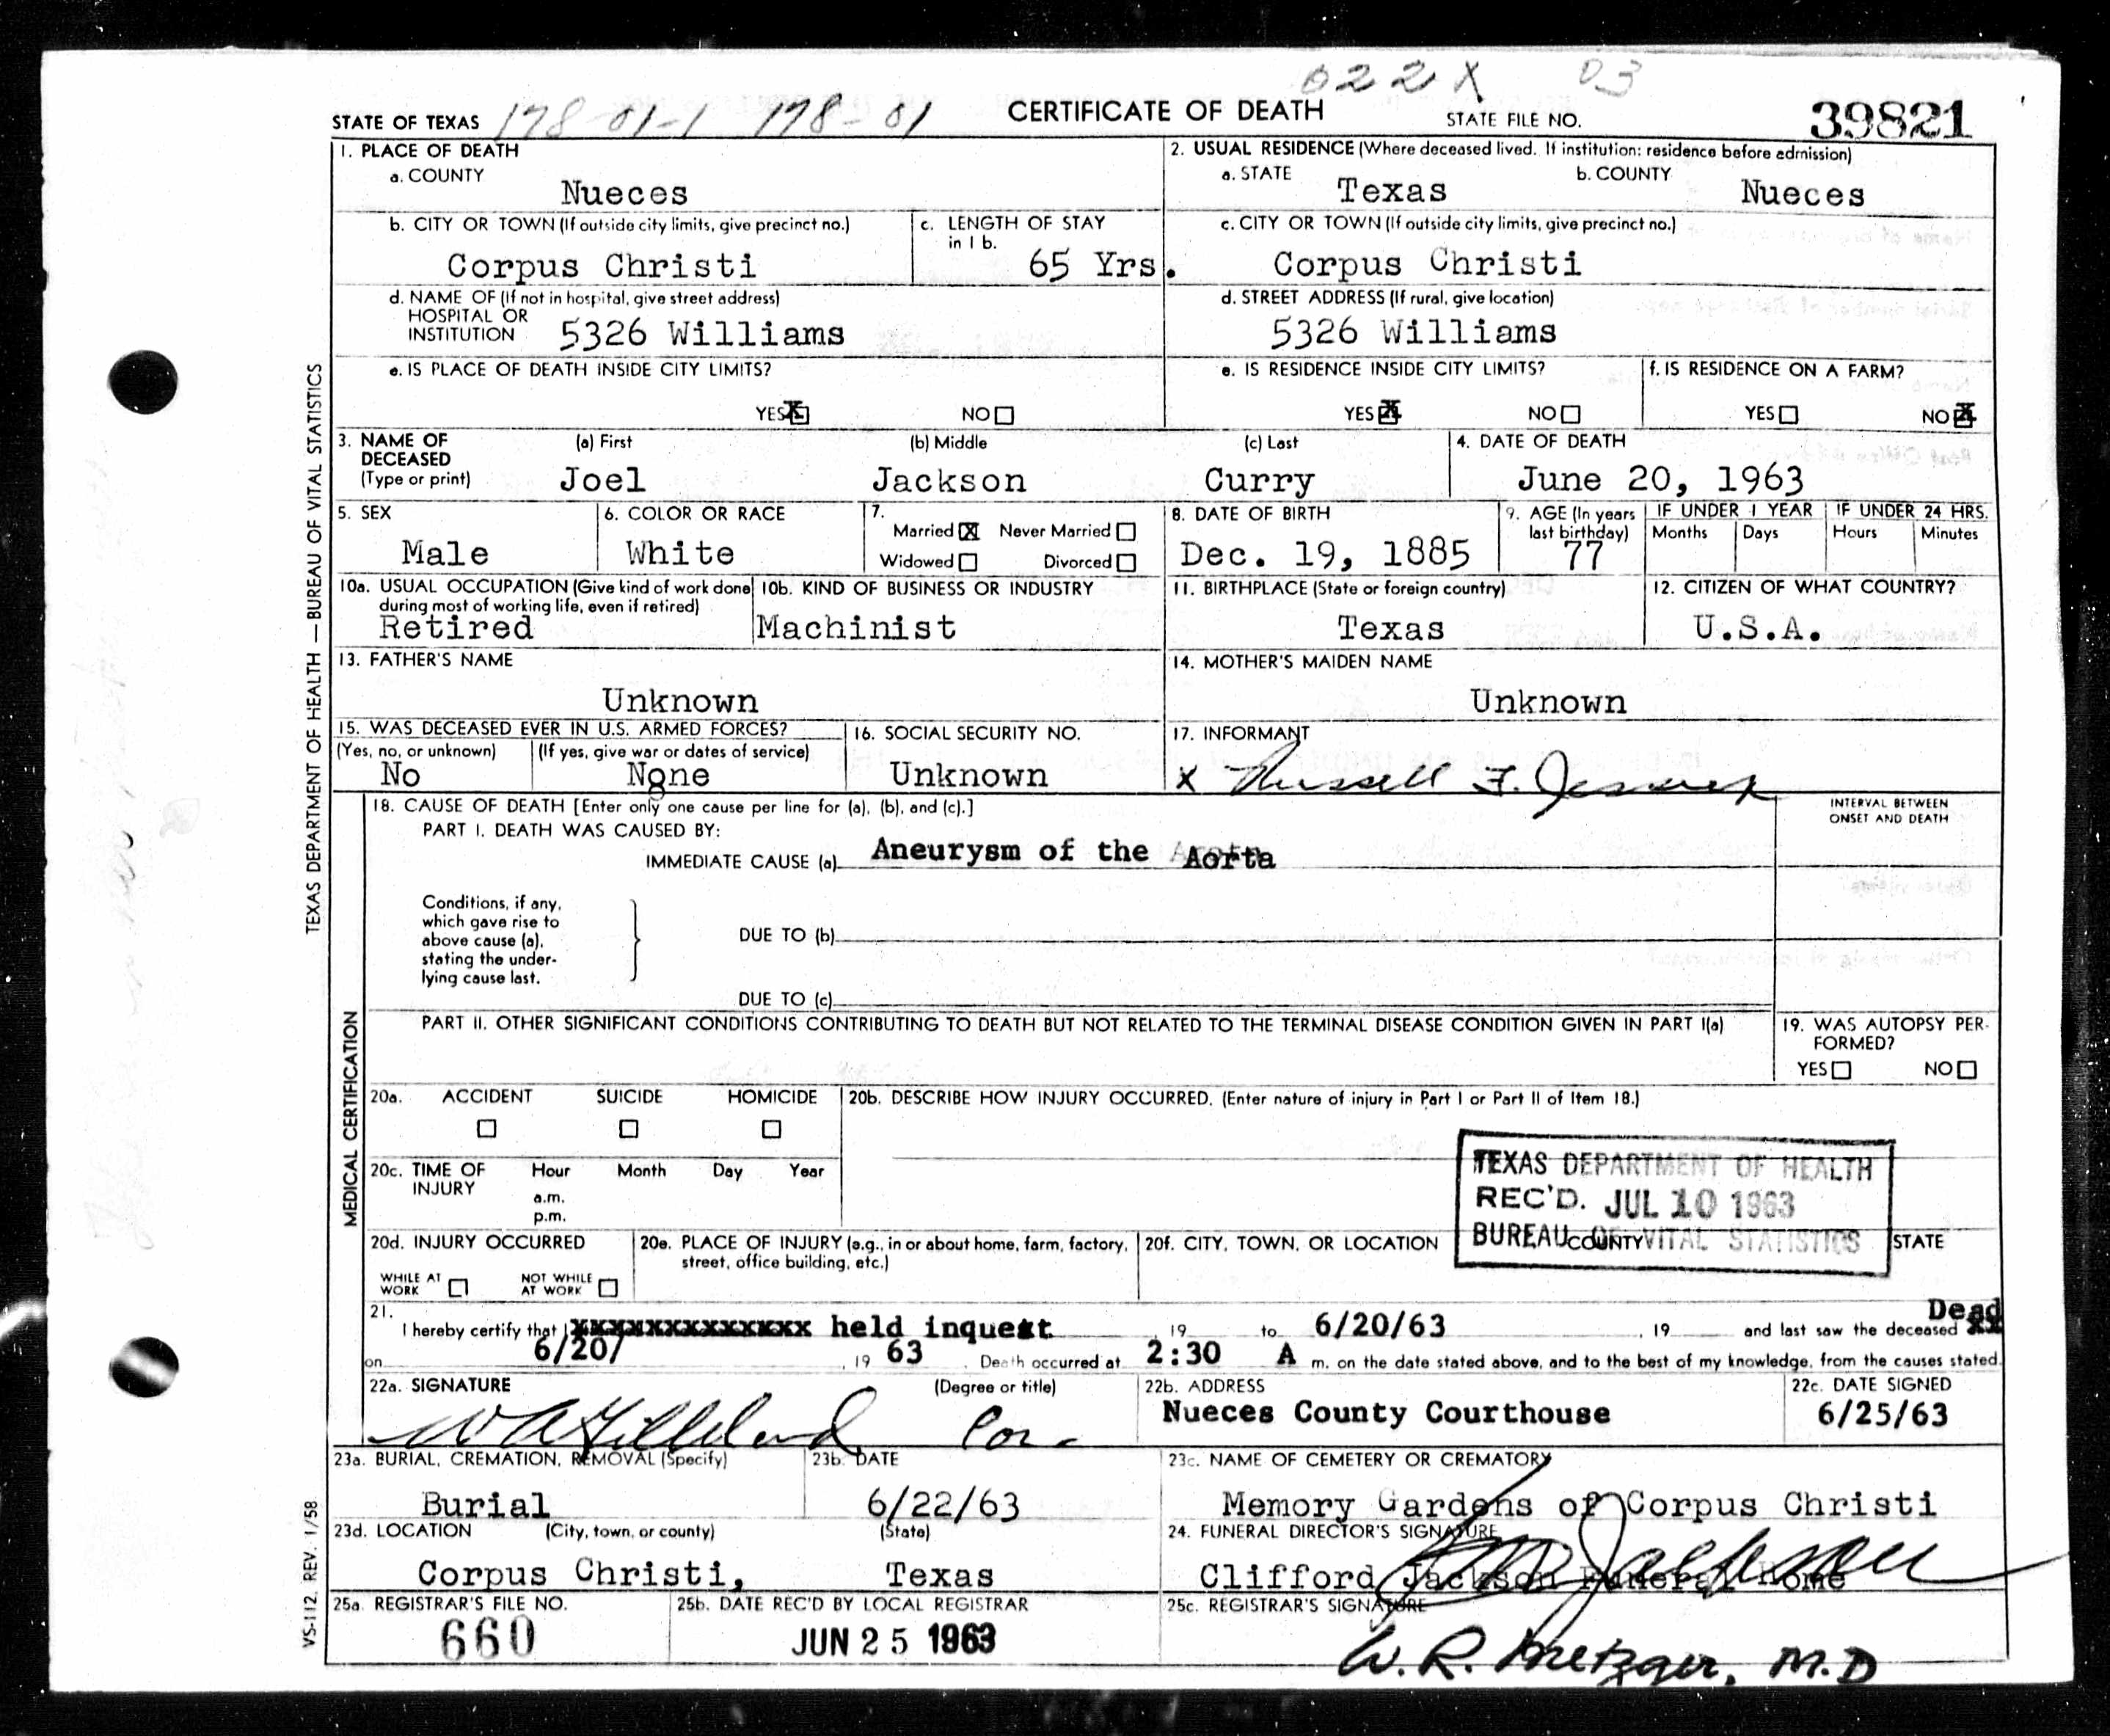 022X 03
STATE OF TEXAS 178-01-1 178-01 CERTIFICATE OF DEATH STATE FILE NO. 39821
1. PLACE OF DEATH
a. COUNTY
Nueces
2. USUAL RESIDENCE (Where deceased lived. If institution: residence before admission)
a. STATE Texas b. COUNTY Nueces
b. CITY OR TOWN (If outside city limits, give precinct no.)
Corpus Christi
c. LENGTH OF STAY
in 1 b.
65 Yrs.
c. CITY OR TOWN (If outside city limits, give precinct no.)
Corpus Christi
d. NAME OF (If not in hospital, give street address)
HOSPITAL OR
INSTITUTION 5326 Williams
d. STREET ADDRESS (If rural, give location)
5326 Williams
e. IS PLACE OF DEATH INSIDE CITY LIMITS?
YES X NO
e. IS RESIDENCE INSIDE CITY LIMITS?
YES X NO
f. IS RESIDENCE ON A FARM?
YES NO X
3. NAME OF
DECEASED
(Type or print)
(a) First (b) Middle (c) Last
Joel Jackson Curry
4. DATE OF DEATH
June 20, 1963
5. SEX
Male
6. COLOR OR RACE
White
7.
Married X Never Married
Widowed Divorced
8. DATE OF BIRTH
Dec. 19, 1885
9. AGE (In years
last birthday)
77
IF UNDER 1 YEAR
Months Days
IF UNDER 24 HRS.
Hours Minutes
10a. USUAL OCCUPATION (Give kind of work done
during most of working life, even if retired)
Retired
10b. KIND OF BUSINESS OR INDUSTRY
Machinist
11. BIRTHPLACE (State or foreign country)
Texas
12. CITIZEN OF WHAT COUNTRY?
U.S.A.
13. FATHER'S NAME
Unknown
14. MOTHER'S MAIDEN NAME
Unknown
15. WAS DECEASED EVER IN U.S. ARMED FORCES?
(Yes, no, or unknown) (If yes, give war or dates of service)
No None
16. SOCIAL SECURITY NO.
Unknown
17. INFORMANT
x Russell F.
18. CAUSE OF DEATH [Enter only one cause per line for (a), (b), and (c).]
PART I. DEATH WAS CAUSED BY:
IMMEDIATE CAUSE (a) Aneurysm of the Aorta
INTERVAL BETWEEN
ONSET AND DEATH
Conditions, if any,
which gave rise to
above cause (a),
stating the under-
lying cause last.
DUE TO (b)
DUE TO (c)
PART II. OTHER SIGNIFICANT CONDITIONS CONTRIBUTING TO DEATH BUT NOT RELATED TO THE TERMINAL DISEASE CONDITION GIVEN IN PART I(a)
19. WAS AUTOPSY PER-
FORMED?
YES NO
20a. ACCIDENT SUICIDE HOMICIDE
20b. DESCRIBE HOW INJURY OCCURRED. (Enter nature of injury in Part I or Part II of Item 18.)
20c. TIME OF
INJURY
Hour Month Day Year
a.m.
p.m.
TEXAS DEPARTMENT OF HEALTH
REC'D. JUL 10 1963
BUREAU OF VITAL STATISTICS
20d. INJURY OCCURRED
WHILE AT
WORK
NOT WHILE
AT WORK
20e. PLACE OF INJURY (e.g., in or about home, farm, factory,
street, office building, etc.)
20f. CITY, TOWN, OR LOCATION COUNTY STATE
21.
I hereby certify that xxxxxxxxxxxxxx held inquest , 19 to 6/20/63 , 19 and last saw the deceased Dead
on 6/20/ , 19 63 . Death occurred at 2:30 A m. on the date stated above, and to the best of my knowledge, from the causes stated.
22a. SIGNATURE (Degree or title)
W A Gilleland Cor.
22b. ADDRESS
Nueces County Courthouse
22c. DATE SIGNED
6/25/63
23a. BURIAL, CREMATION, REMOVAL (Specify)
Burial
23b. DATE
6/22/63
23c. NAME OF CEMETERY OR CREMATORY
Memory Gardens of Corpus Christi
23d. LOCATION (City, town, or county) (State)
Corpus Christi, Texas
24. FUNERAL DIRECTOR'S SIGNATURE
Clifford Jackson Funeral Home
25a. REGISTRAR'S FILE NO.
660
25b. DATE REC'D BY LOCAL REGISTRAR
JUN 25 1963
25c. REGISTRAR'S SIGNATURE
W. R. Metzger, M.D
TEXAS DEPARTMENT OF HEALTH — BUREAU OF VITAL STATISTICS
MEDICAL CERTIFICATION
VS-112 REV. 1/58